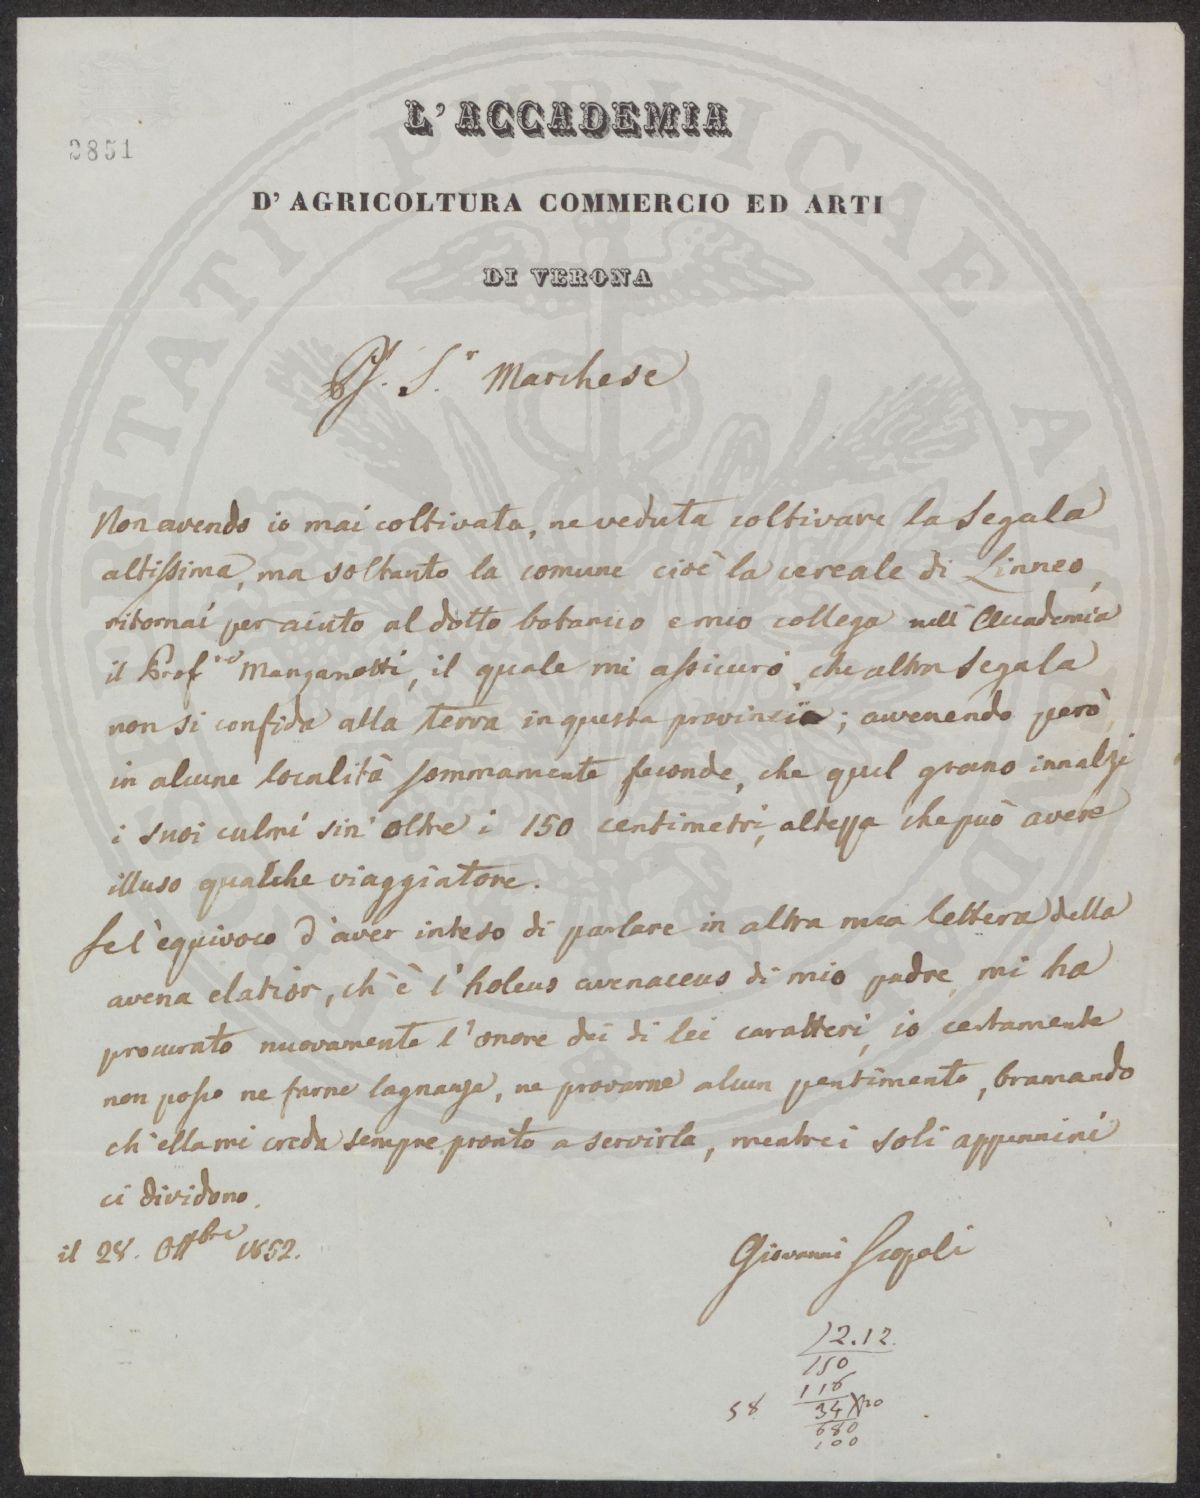 2851
L'ACCADEMIA
D'AGRICOLTURA COMMERCIO ED ARTI
DI VERONA
S.r Marchese
Non avendo io mai coltivata, ne veduta coltivare la Segala
altissima, ma soltanto la comune cioè la cereale di Linneo,
ritornai per aiuto al dotto botanico e mio collega nell'Accademia
il Prof.re Manganotti, il quale mi assicurò, che altra segala
non si confida alla terra in questa provincia; avvenendo però,
in alcune località sommamente feconde, che quel grano innalzi
i suoi culmi sin' oltre i 150 centimetri, altezza che può avere
illuso qualche viaggiatore.
Se l'equivoco d'aver inteso di parlare in altra mia lettera della
avena elatior, ch'è l'holcus avenaceus di mio padre, mi ha
procurato nuovamente l'onore dei di lei caratteri, io certamente
non posso ne farne lagnanza, ne provarne alcun pentimento, bramando
ch'ella mi creda sempre pronto a servirla, mentre i soli appennini
ci dividono.
il 28. Ottbre 1852.
Giovanni Scopoli
12.12
150
116
58 34 X 20
680
100